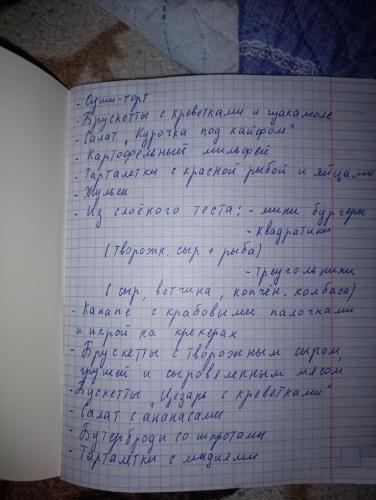 - Суши-торт
- Брускетты с креветками и гуакамоле
- Салат "Курочка под кайфом"
- Картофельный мильфей
- Тарталетки с красной рыбой и яйцами
- Жульен
- Из слоёного теста: - мини бургеры
- Квадратики
(творожн. сыр + рыба)
- Треугольники
(сыр, ветчина, копчён. колбаса)
- Канапе с крабовыми палочками
и икрой на крекерах
- Брускетты с творожным сыром,
грушей и сыровяленным мясом
- Бускетты "Цезарь с креветками"
- Салат с ананасами
- Бутерброды со шпротами
- Тарталетки с мидиями